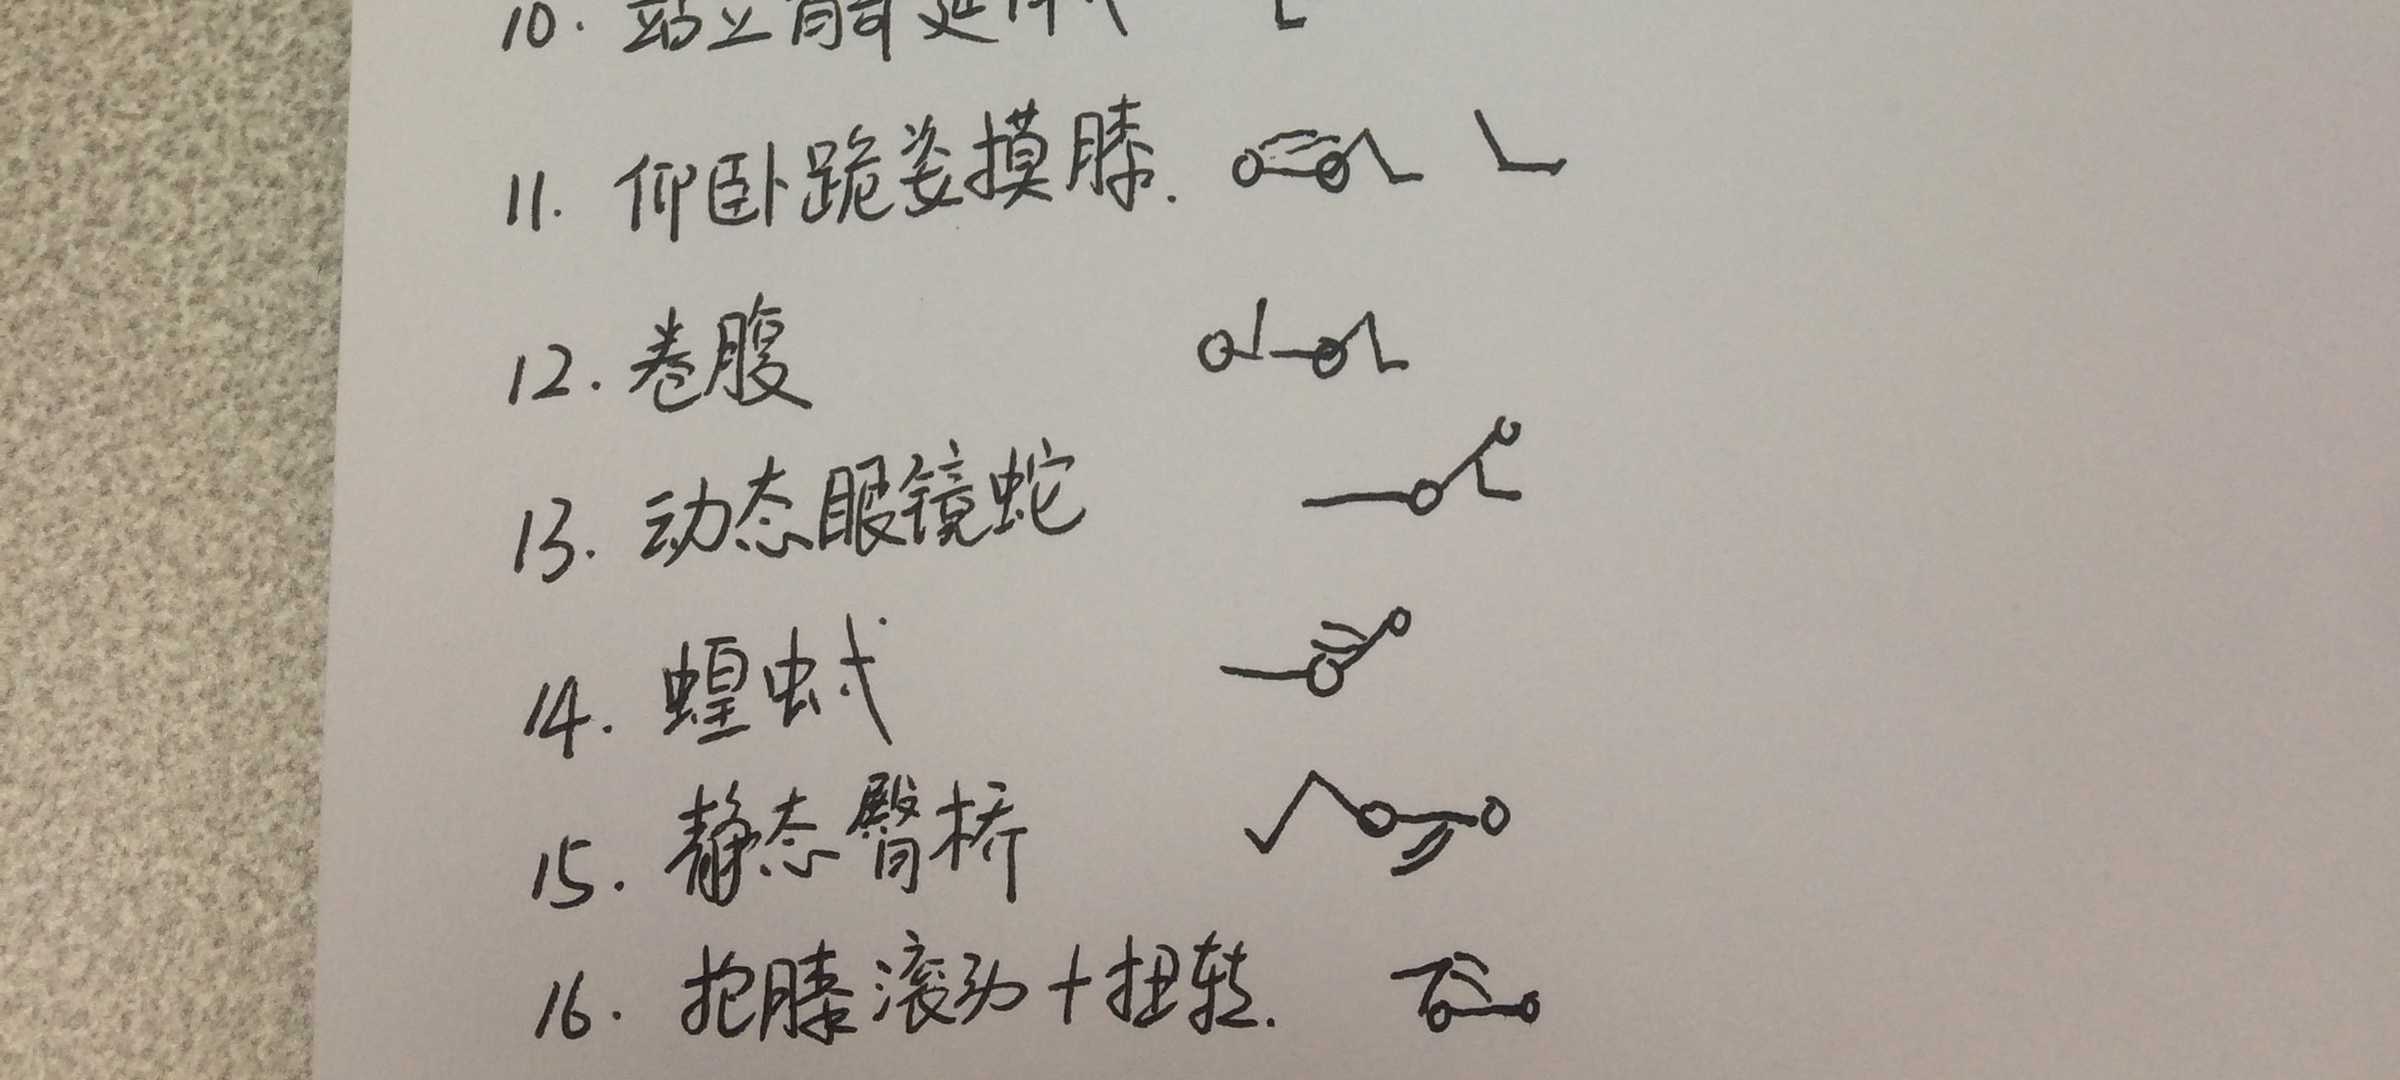 10. 站立前延伸式
11. 仰卧跪姿摸膝.
12. 卷腹
13. 动态眼镜蛇
14. 蝗虫式
15. 静态臀桥
16. 抱膝滚动+扭转.